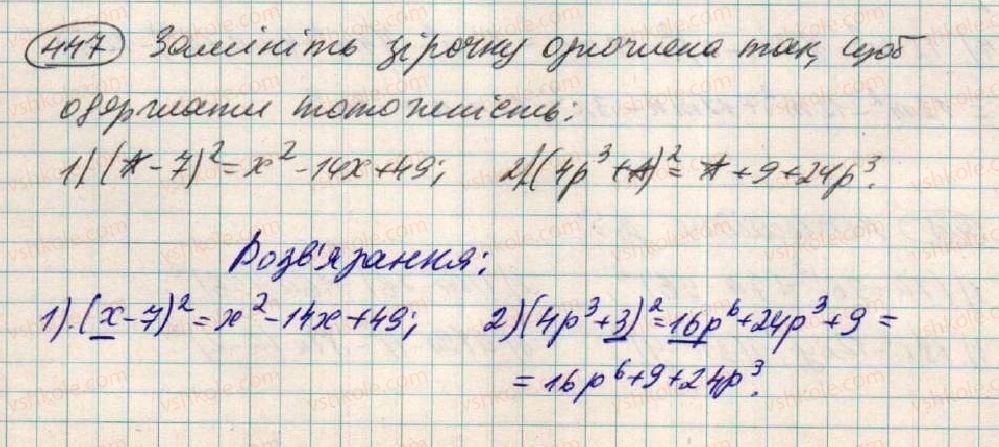 447 Замініть зірочку одночлена так, щоб
одержати тотожність:
1) (* - 7)² = x² - 14x + 49; 2) (4p³ + *)² = * + 9 + 24p³.
Розв'язання:
1). (x - 7)² = x² - 14x + 49; 2) (4p³ + 3)² = 16p⁶ + 24p³ + 9 =
= 16p⁶ + 9 + 24p³.